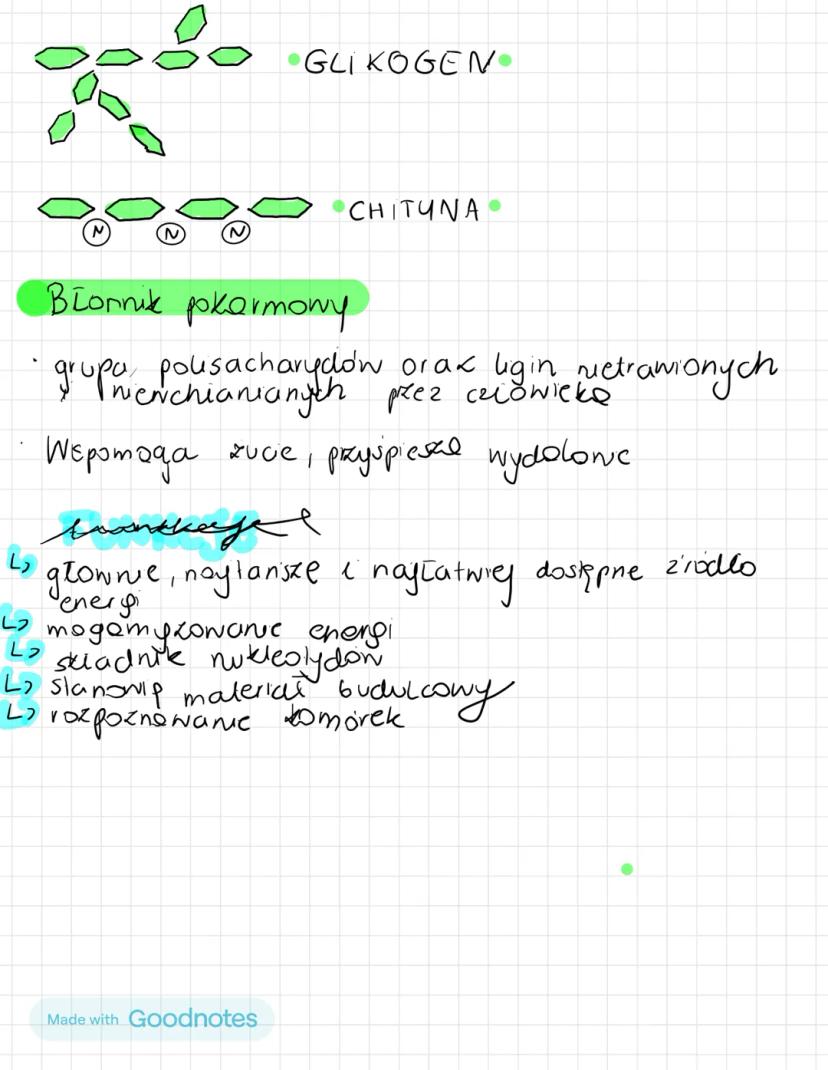 • GLIKOGEN •
• CHITYNA •
N N N
Błonnik pokarmowy
· grupa polisacharydów oraz lignin nietrawionych
i niewchłanianych przez człowieka
· Wspomaga żucie, przyśpiesza wydalanie
Funkcje
↳ głównie, najtańsze i najłatwiej dostępne źródło
energi
↳ magazynowanie energi
↳ składnik nukleotydów
↳ stanowią materiał budulcowy
↳ rozpoznawanie komórek
Made with Goodnotes